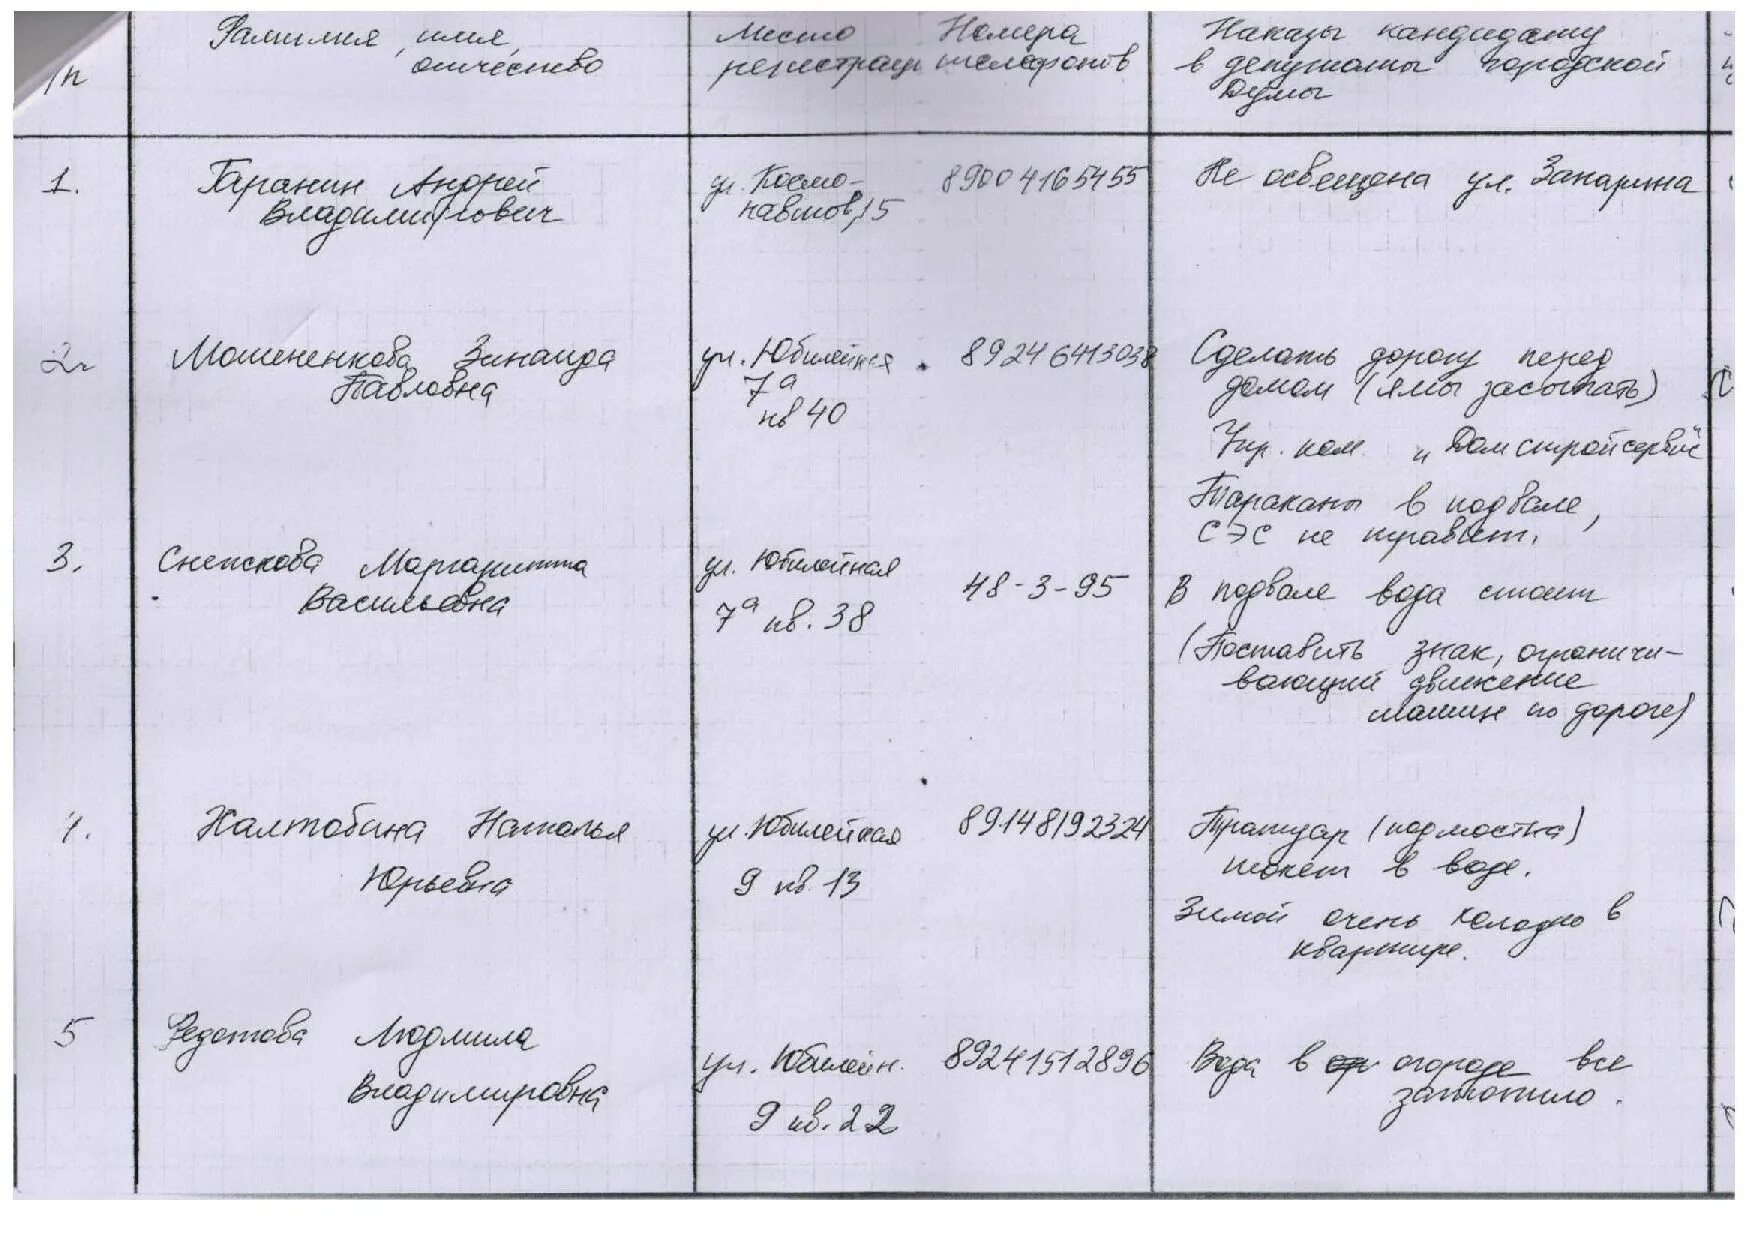 Фамилия, имя,
отчество
Место
регистрац
Номера
телефонов
Наказы кандидату
в депутаты городской
Думы
/п
1.
Гаранин Андрей
Владимирович
ул. Космо-
навтов, 15
89004165455
Не освещена ул. Гагарина
2.
Мошененкова Зинаида
Павловна
ул. Юбилейная
7а
кв 40
89246413038
Сделать дорогу перед
домом (ямы засыпать)
Упр. ком. "Домстройсервис"
Тараканы в подвале,
СЭС не травит.
3.
Снепкова Маргаритта
Васильевна
ул. Юбилейная
7а кв. 38
48-3-95
В подвале вода стоит
(Поставить знак, ограничи-
вающий движение
машин по дороге)
4.
Халтобина Наталья
Юрьевна
ул. Юбилейная
9 кв. 13
89148192324
Тротуар (подмостка)
тонет в воде.
Зимой очень холодно в
квартире.
5
Федотова Людмила
Владимировна
ул. Юбилейн.
9 кв. 22
89241512896
Вода в огороде все
затопило.